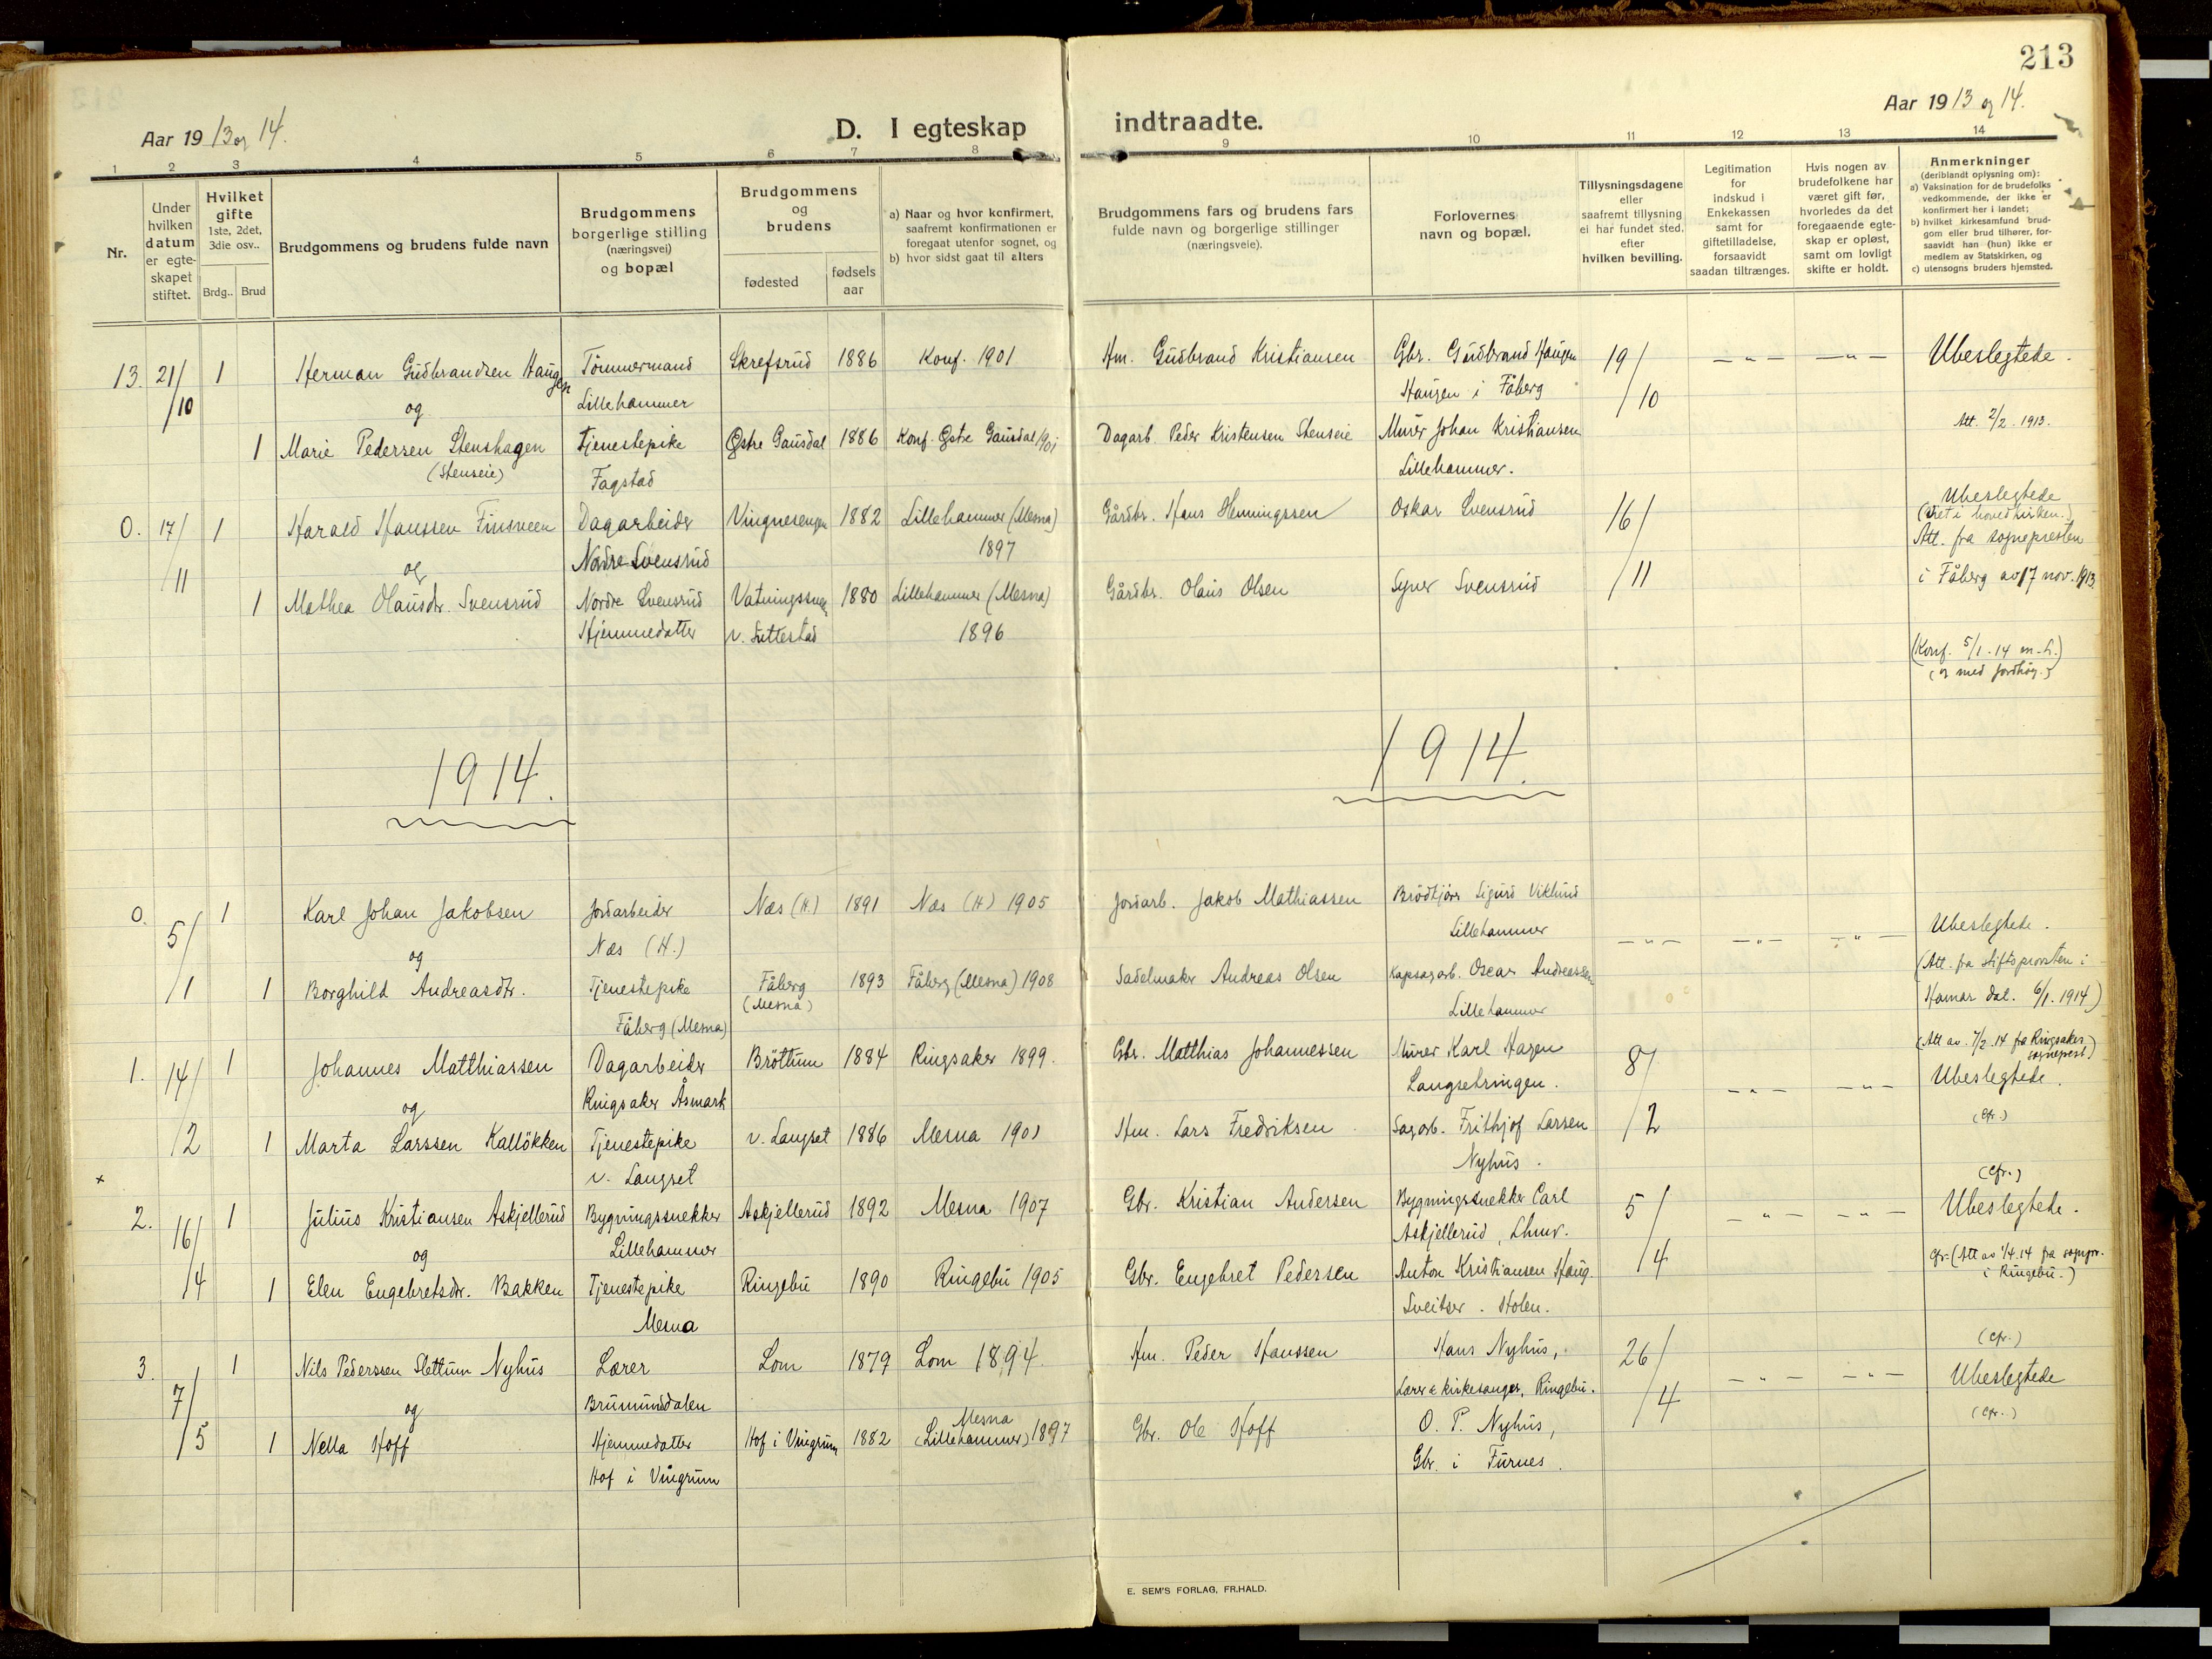 213
Aar 1913 og 14.
D. I egteskap
indtraadte.
Aar 1913 og 14.
1 2 3 4 5 6 7 8 9 10 11 12 13 14
Nr.
Under hvilken datum er egteskapet stiftet.
Hvilket gifte 1ste, 2det, 3die osv..
Brdg.. Brud
Brudgommens og brudens fulde navn
Brudgommens borgerlige stilling (næringsvei) og bopæl
Brudgommens og brudens
fødested
fødsels aar
a) Naar og hvor konfirmert, saafremt konfirmationen er foregaat utenfor sognet, og
b) hvor sidst gaat til alters
Brudgommens fars og brudens fars fulde navn og borgerlige stillinger (næringsveie).
Forlovernes navn og bopæl.
Tillysningsdagene eller saafremt tillysning ei har fundet sted, efter hvilken bevilling.
Legitimation for indskud i Enkekassen samt for giftetilladelse, forsaavidt saadan tiltrænges.
Hvis nogen av brudefolkene har været gift før, hvorledes da det foregaaende egteskap er opløst, samt om lovligt skifte er holdt.
Anmerkninger (deriblandt oplysning om):
a) Vaksination for de brudefolks vedkommende, der ikke er konfirmert her i landet;
b) hvilket kirkesamfund brudgom eller brud tilhører, forsaavidt han (hun) ikke er medlem av Statskirken, og
c) utensogns bruders hjemsted.
13. 21/10 1 Herman Gudbrandsen Haugen Tømmermand Skrefsrud 1886 Konf. 1901 Hm. Gudbrand Kristiansen Gbr. Gudbrand Haugen 19/10 — " — — " — Ubeslegtede.
og Lillehammer Haugen i Fåberg
1 Marie Pedersen Stenshagen Tjenestepike Østre Gausdal 1886 Konf. Østre Gausdal 1901 Dagarb. Peder Kristensen Stenseie Murer Johan Kristiansen Att. 2/2. 1913.
(Stenseie) Fagstad Lillehammer.
0. 17/11 1 Harald Hanssen Finsveen Dagarbeider Vingnesengen 1882 Lillehammer (Mesna) Gårdbr. Hans Henningssen Oskar Svensrud 16/11 Ubeslegtede
og Nordre Svensrud 1897 (Viet i hovedkirken.)
Att. fra sognepresten
1 Mathea Olausdr. Svensrud Nordre Svensrud 1880 Lillehammer (Mesna) Gårdbr. Olaus Olsen Syver Svensrud i Fåberg av 17 nov. 1913
Hjemmedatter v. Suttestad 1896
(Konf. 5/1. 14
1914. 1914.
0. 5/1 1 Karl Johan Jakobsen Jordarbeider Næs (H.) 1891 Næs (H) 1905 Jordarb. Jakob Mathiassen Brödkjörer Sigurd Viklund Ubeslegtede.
og Næs (H.) Lillehammer — " — — " — — " —
1 Borghild Andreasdtr. Tjenestepike Fåberg 1893 Fåberg (Mesna) 1908 Sadelmaker Andreas Olsen Kapsagarb. Oscar Andreassen (Att. fra stiftsprovsten i
Fåberg (Mesna) (Mesna) Lillehammer Hamar dat. 6/1. 1914)
1. 14/2 1 Johannes Matthiassen Dagarbeider Bröttum 1884 Ringsaker 1899. Gbr. Matthias Johannessen Murer Karl Hagen 8/2 — " — — " — (Att av. 7/2. 14 fra Ringsaker sognepest)
og Ringsaker Åsmark Langsetringen. Ubeslegtede.
1 Marta Larssen Kallökken Tjenestepike v. Langset 1886 Mesna 1901 Hm. Lars Fredriksen Sagarb. Frithjof Larsen (Cfr.)
v. Langset Nyhus.
x
2. 16/4 1 Julius Kristiansen Askjellerud Bygningssnekker Askjellerud 1892 Mesna 1907 Gbr. Kristian Andersen Bygningssnekker Carl 5/4 — " — — " — (Cfr.)
og Lillehammer Askjellerud, Lhmr. Ubeslegtede.
1 Elen Engebretsdr. Bakken Tjenestepike Ringebu 1890 Ringebu 1905 Gbr. Engebret Pedersen Anton Kristiansen Haug Cfr. (Att av 1/4. 14 fra sognpr. i Ringebu.)
Mesna Sveitser. Holen.
3. 7/5 1 Nils Pederssen Slettum Nyhus Lærer Lom 1879 Lom 1894. Hm. Peder Hanssen Hans Nyhus, 26/4 — " — — " — (Cfr.)
og Brumunddalen Lærer & kirkesanger, Ringebu. Ubeslegtede
1 Nella Hoff Hjemmedatter Hof i Vingrum 1882 Mesna (Lillehammer) 1897 Gbr. Ole Hoff O. P. Nyhus, (Cfr.)
Hof i Vingrum Gbr. i Furnes.
E. SEM'S FORLAG, FR.HALD.